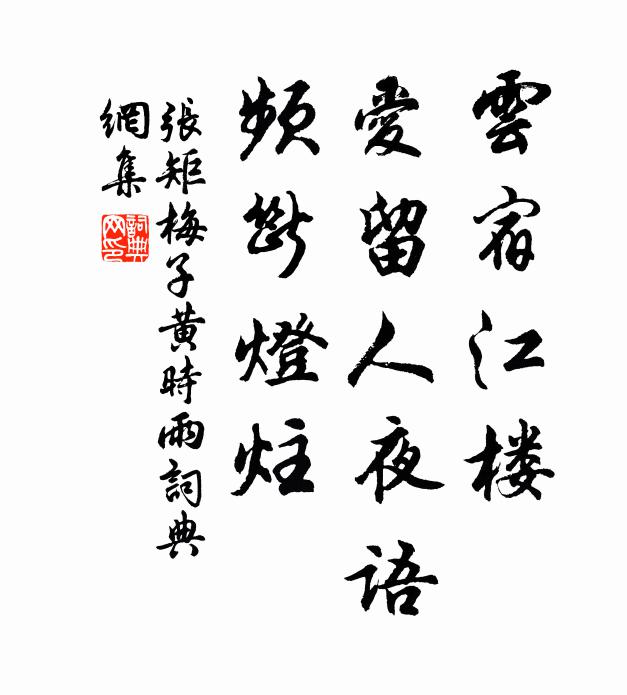 雲宿江楼
愛留人夜語
頻斷燈炷
張矩梅子黄時雨詞典
網集
詞典网印